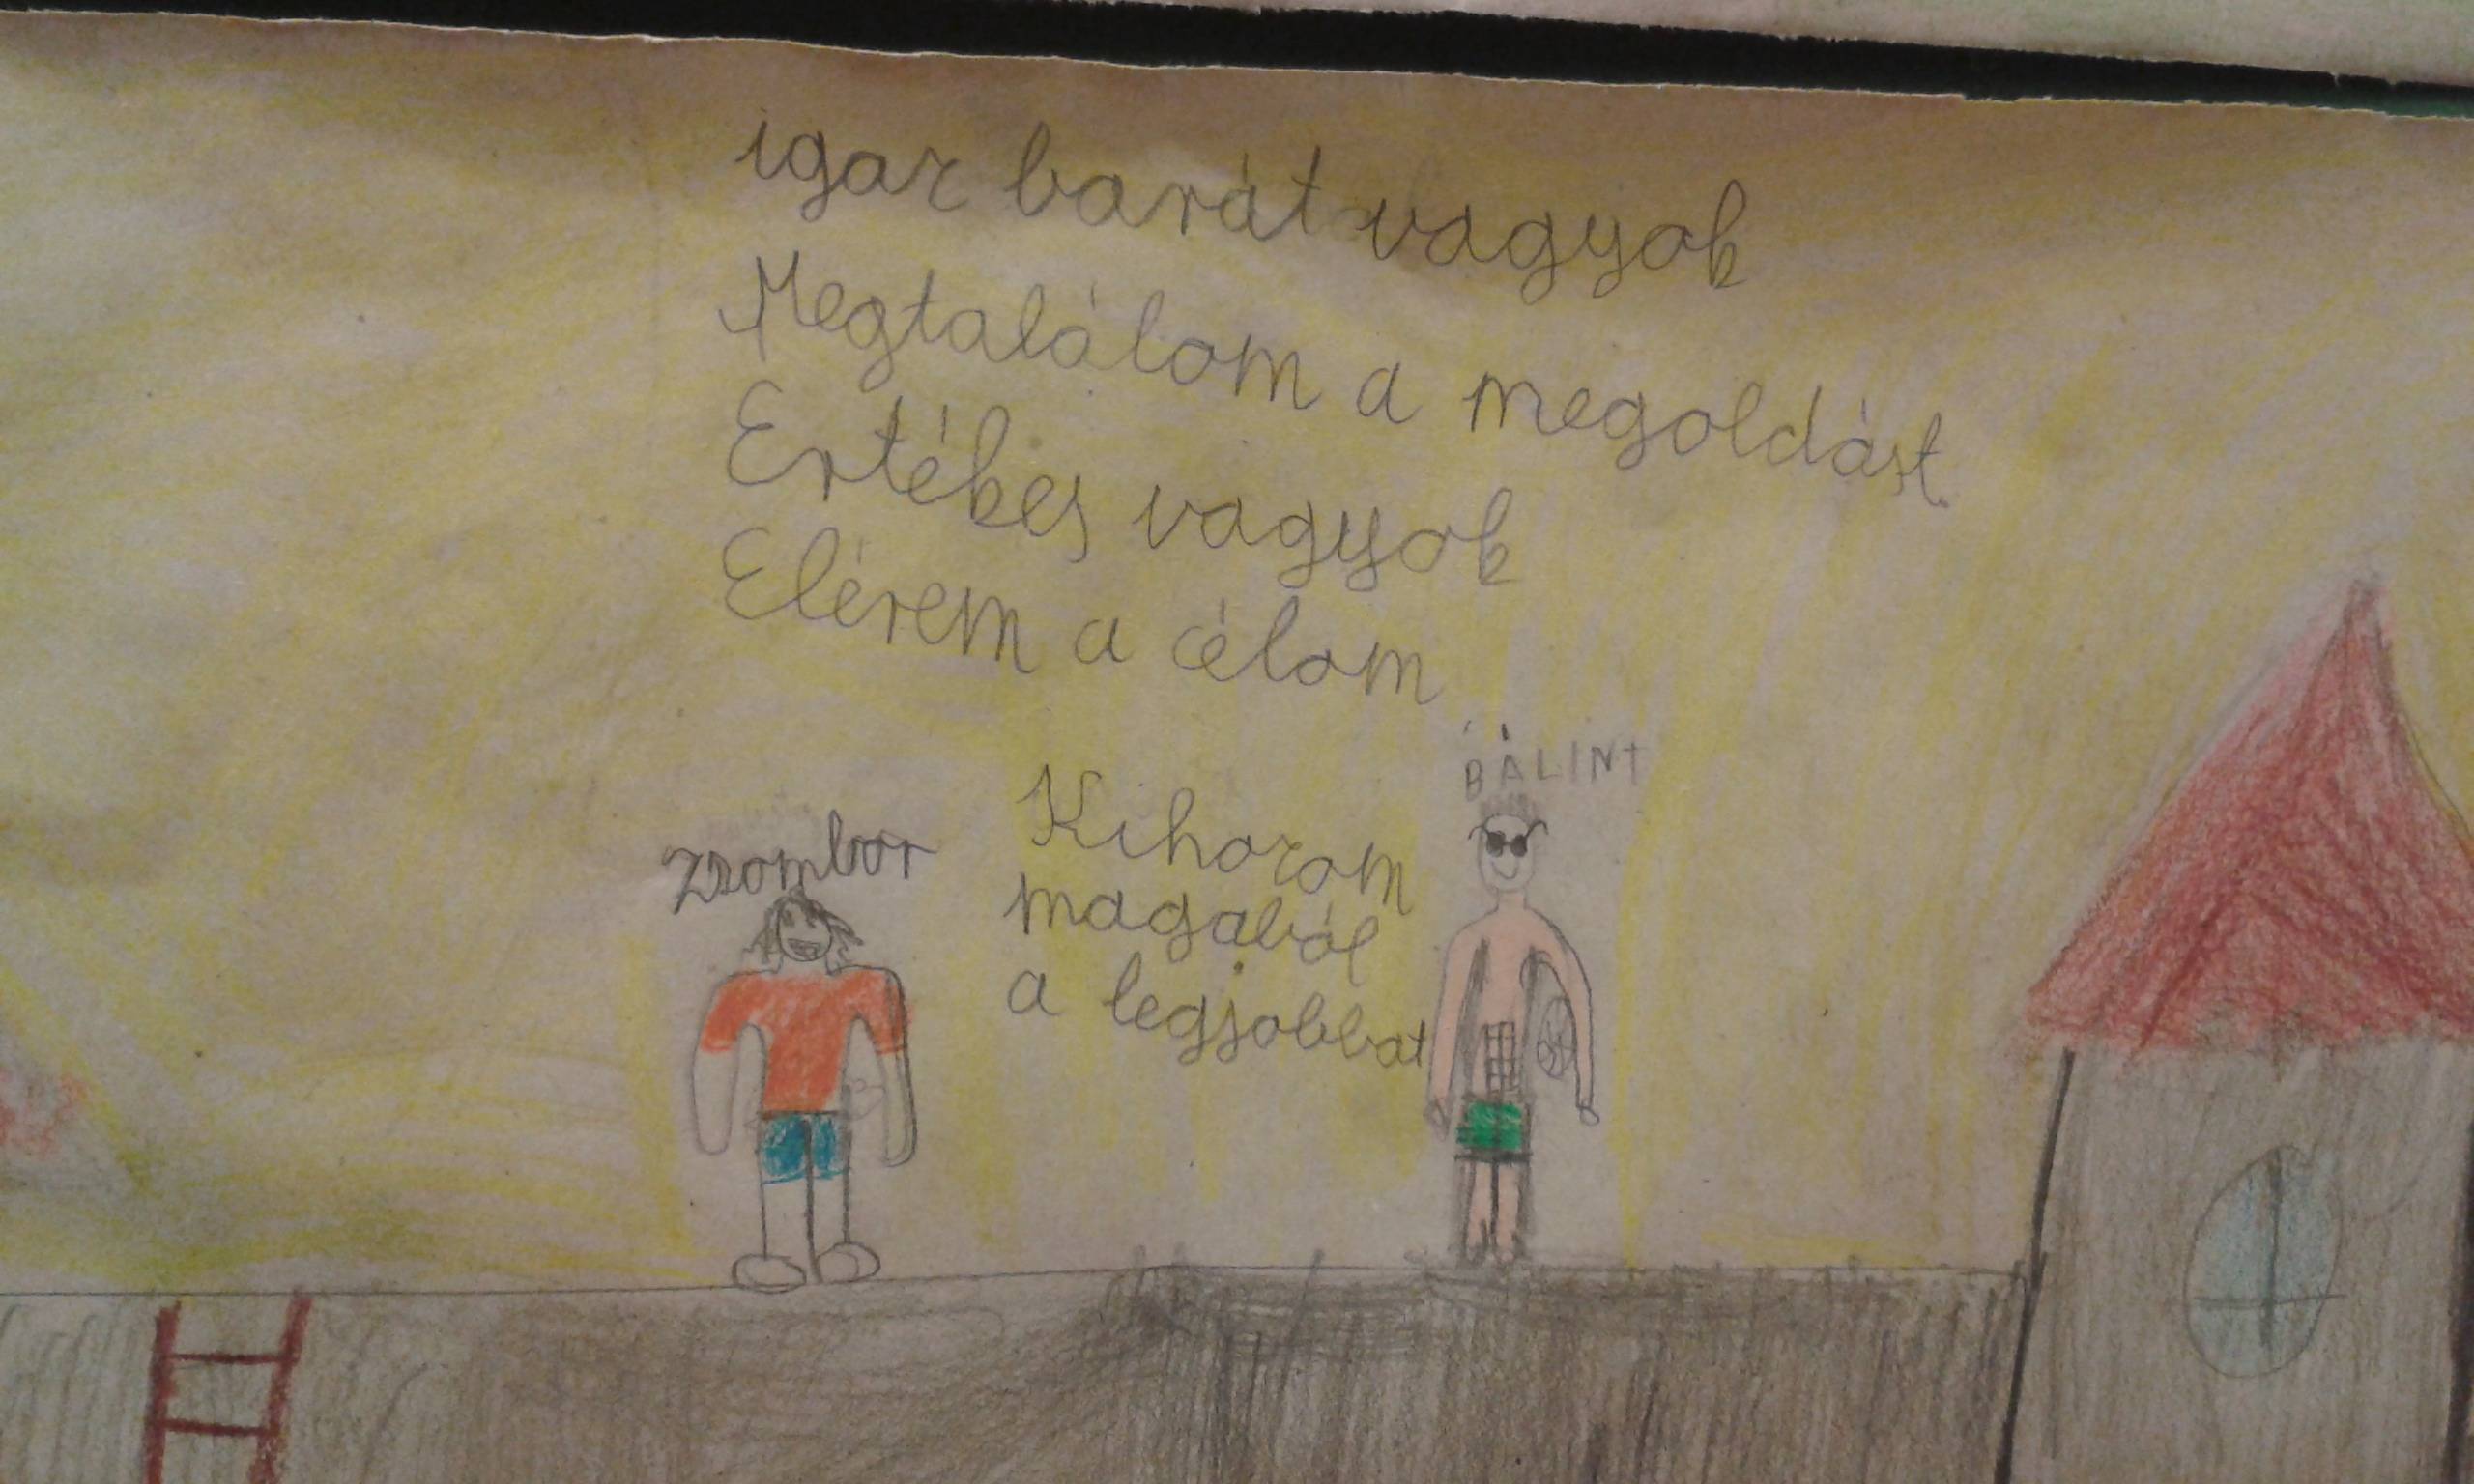 igaz barát vagyok
Megtalálom a megoldást.
Ertékes vagyok
Elérem a célom
BÁLINT
Zsombor
Kihozom
magaból
a legjobbat